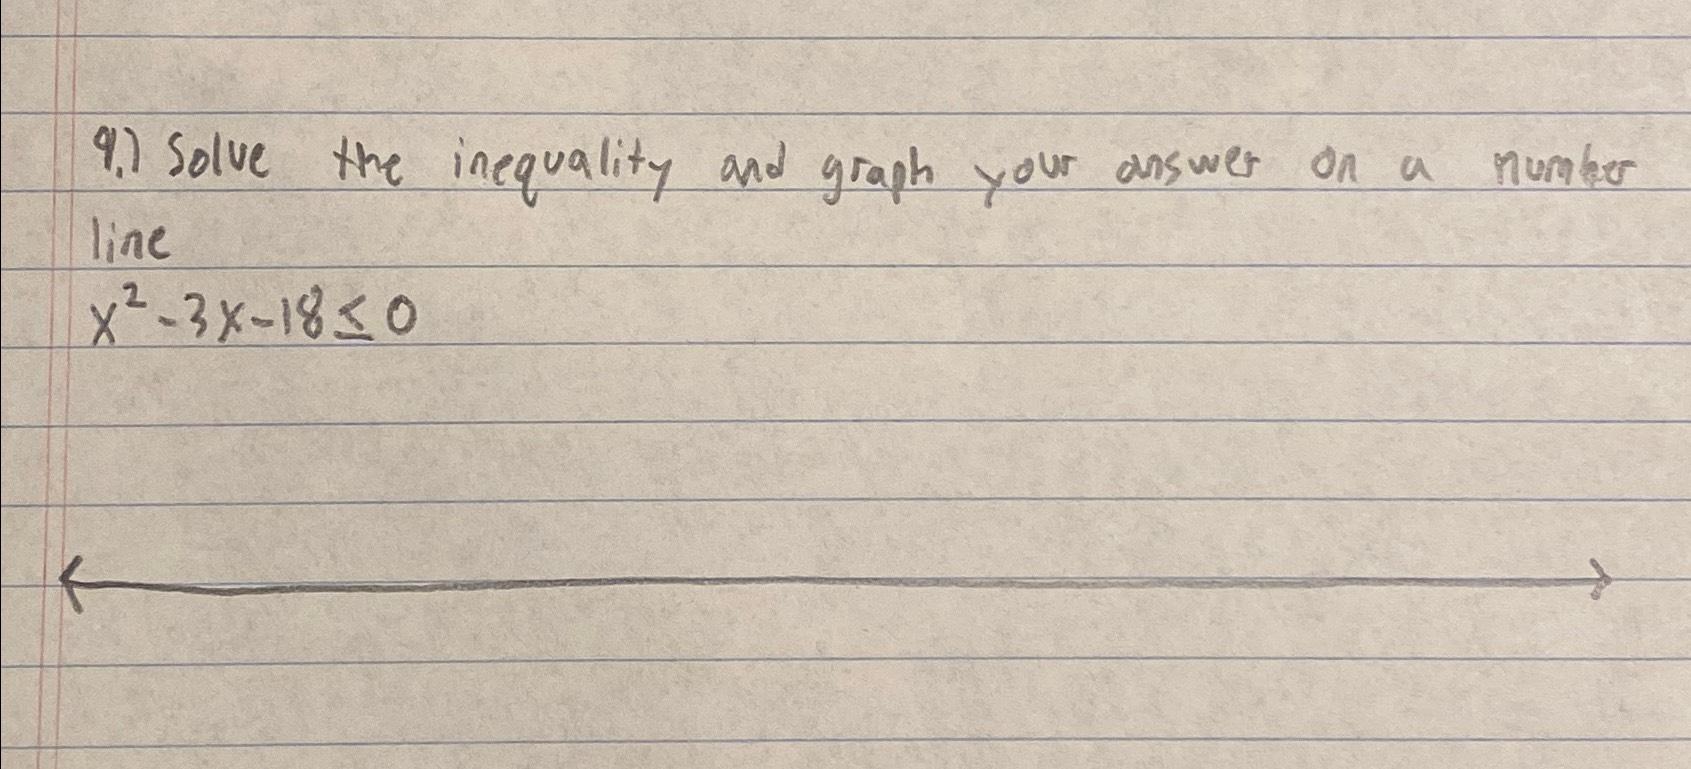 9.) Solve the inequality and graph your answer on a number
line
x² - 3x - 18 ≤ 0